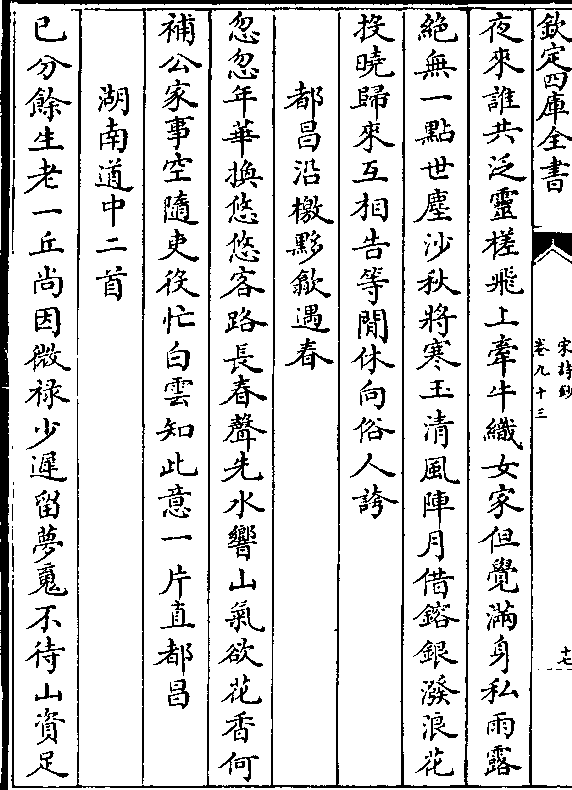 欽定四庫全書
宋詩鈔
卷九十三
十七
夜來誰共泛靈槎飛上牽牛織女家但覺滿身私雨露
絶無一點世塵沙秋將寒玉清風陣月借鎔銀潑浪花
投曉歸來互相告等閒休向俗人誇
都昌沿檄黟歙遇春
忽忽年華換悠悠客路長春聲先水響山氣欲花香何
補公家事空隨吏役忙白雲知此意一片直都昌
湖南道中二首
已分餘生老一丘尚因微祿少遲留夢魂不待山資足